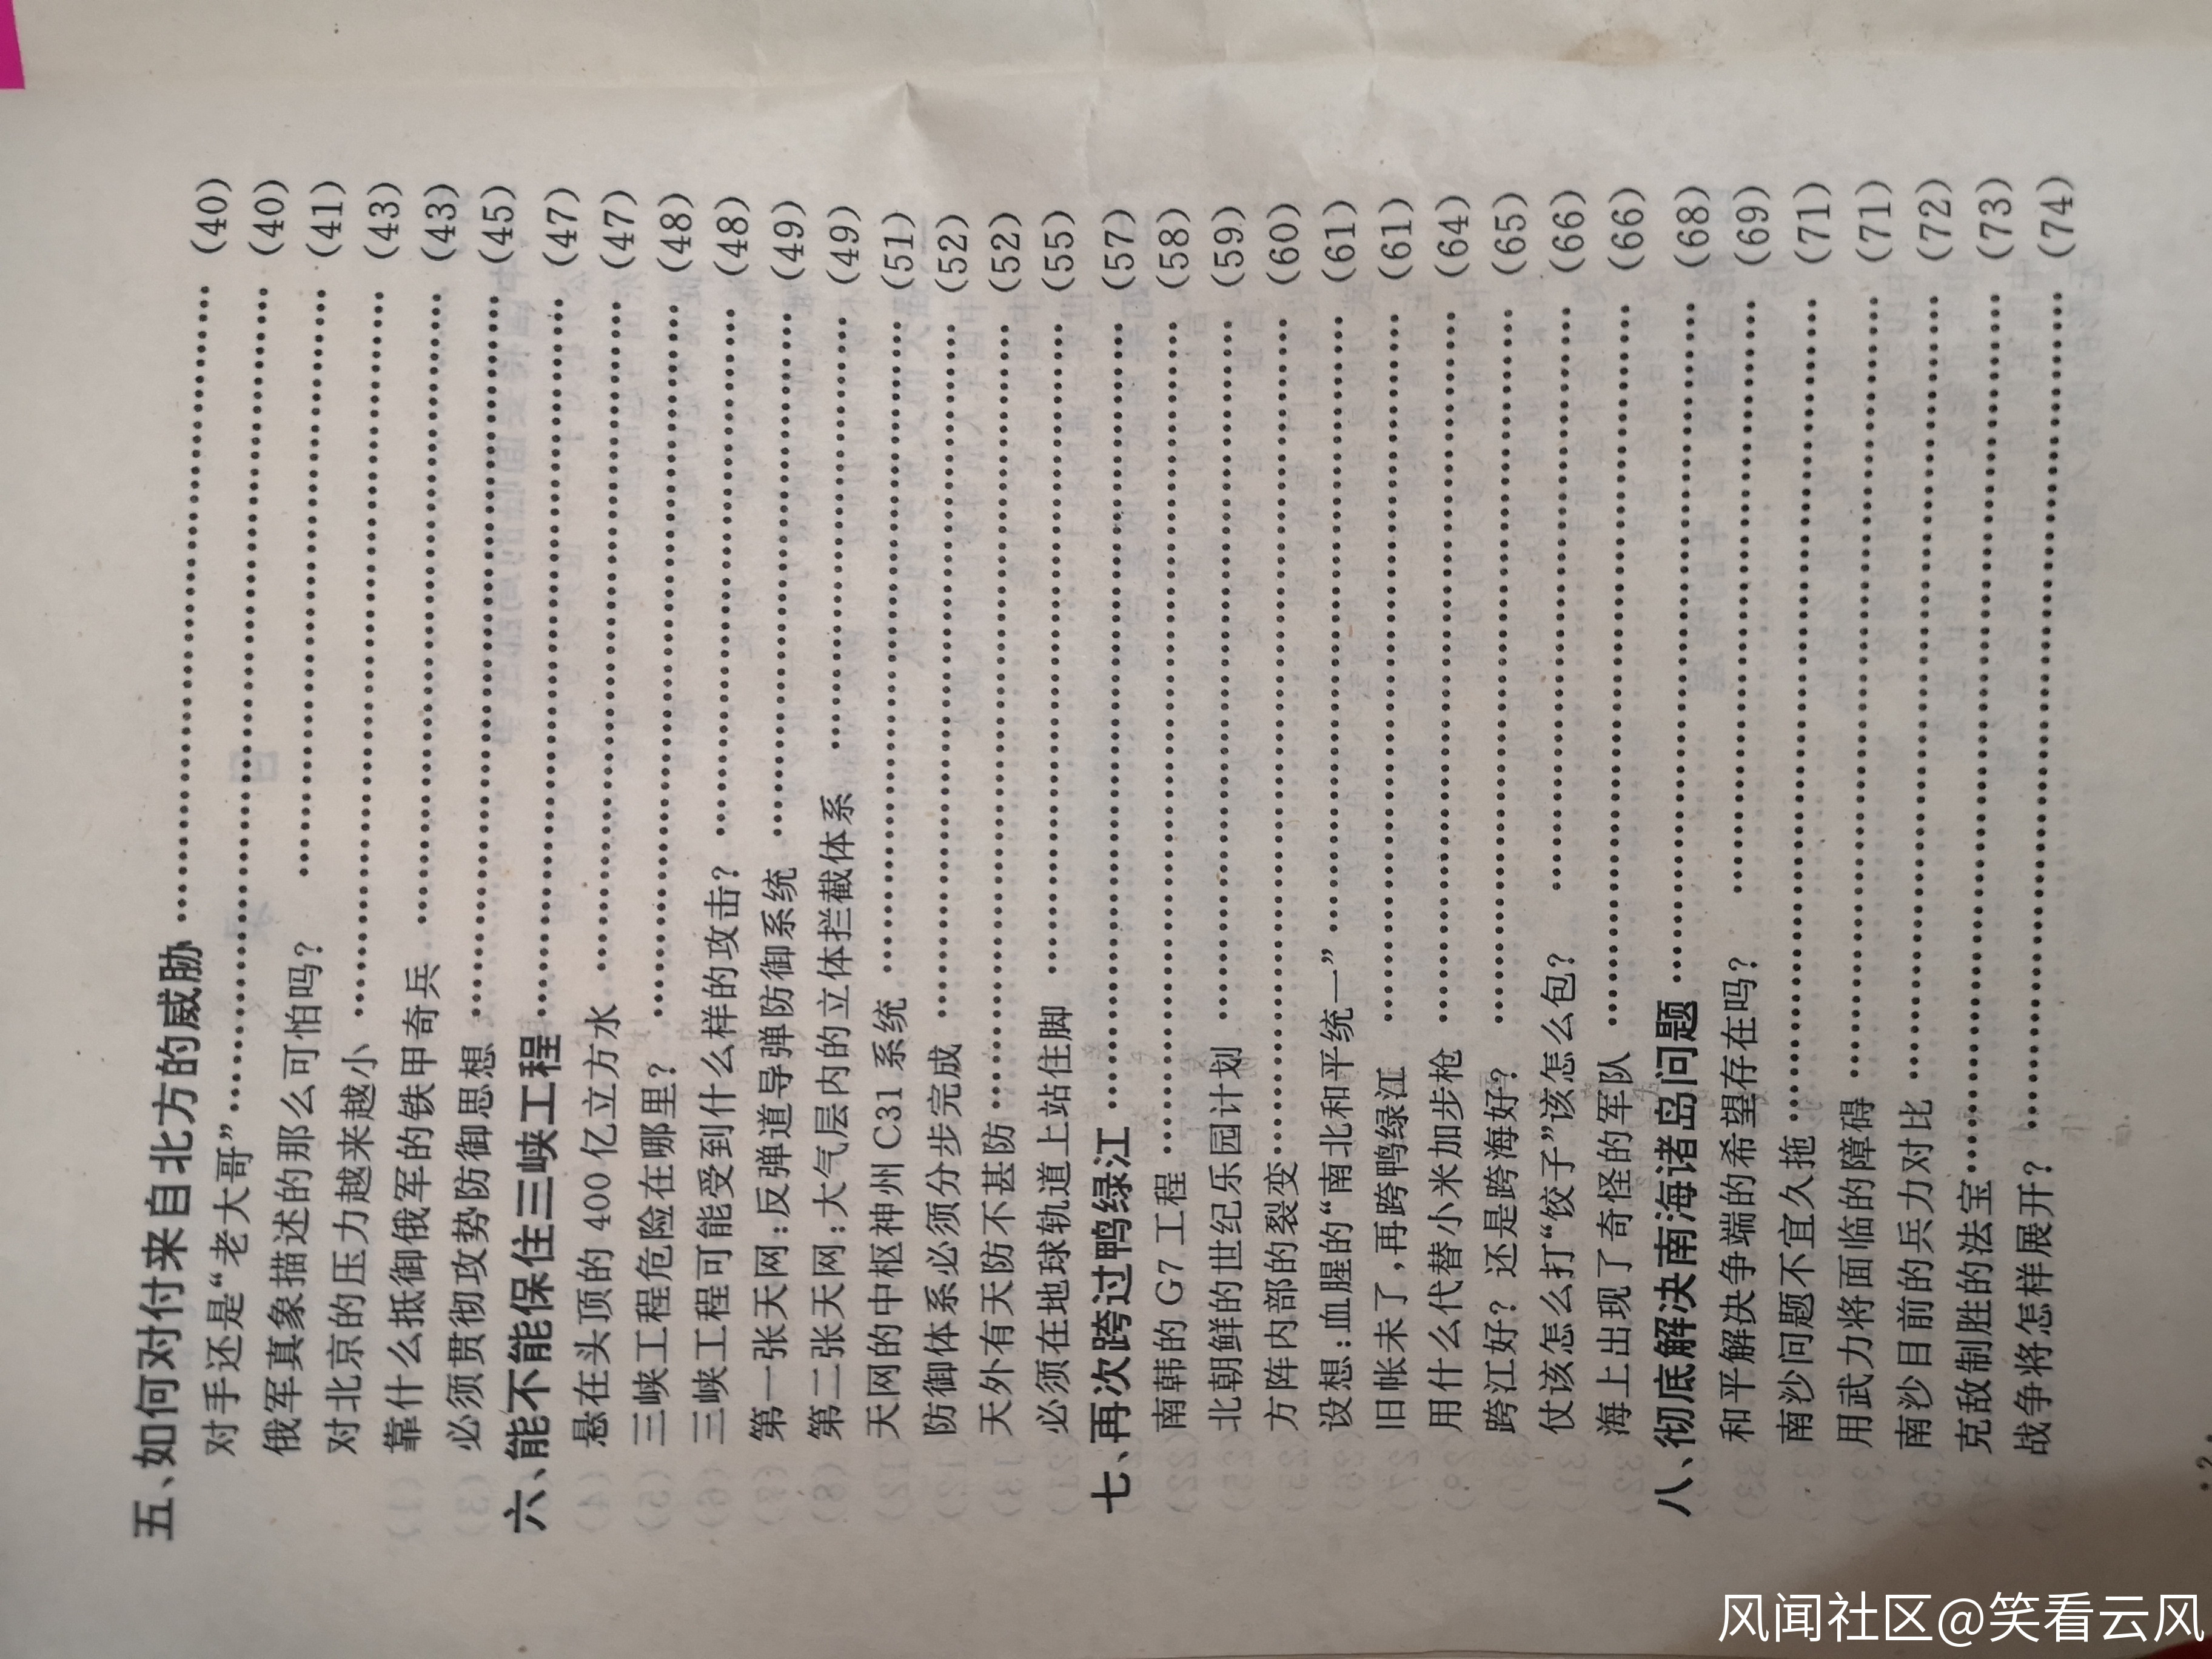 五、如何对付来自北方的威胁 …………………… (40)
对手还是“老大哥” …………………… (40)
俄军真象描述的那么可怕吗? …………………… (41)
对北京的压力越来越小 …………………… (43)
靠什么抵御俄军的铁甲奇兵 …………………… (43)
必须贯彻攻势防御思想 …………………… (45)
六、能不能保住三峡工程 …………………… (47)
悬在头顶的 400 亿立方水 …………………… (47)
三峡工程危险在哪里? …………………… (48)
三峡工程可能受到什么样的攻击? …………………… (48)
第一张天网:反弹道导弹防御系统 …………………… (49)
第二张天网:大气层内的立体拦截体系 …………………… (49)
天网的中枢神州 C31 系统 …………………… (51)
防御体系必须分步完成 …………………… (52)
天外有天防不甚防 …………………… (52)
必须在地球轨道上站住脚 …………………… (55)
七、再次跨过鸭绿江 …………………… (57)
南韩的 G7 工程 …………………… (58)
北朝鲜的世纪乐园计划 …………………… (59)
方阵内部的裂变 …………………… (60)
设想:血腥的“南北和平统一” …………………… (61)
旧帐未了,再跨鸭绿江 …………………… (61)
用什么代替小米加步枪 …………………… (64)
跨江好? 还是跨海好? …………………… (65)
仗该怎么打“饺子”该怎么包? …………………… (66)
海上出现了奇怪的军队 …………………… (66)
八、彻底解决南海诸岛问题 …………………… (68)
和平解决争端的希望存在吗? …………………… (69)
南沙问题不宜久拖 …………………… (71)
用武力将面临的障碍 …………………… (71)
南沙目前的兵力对比 …………………… (72)
克敌制胜的法宝 …………………… (73)
战争将怎样展开? …………………… (74)
风闻社区@笑看云风